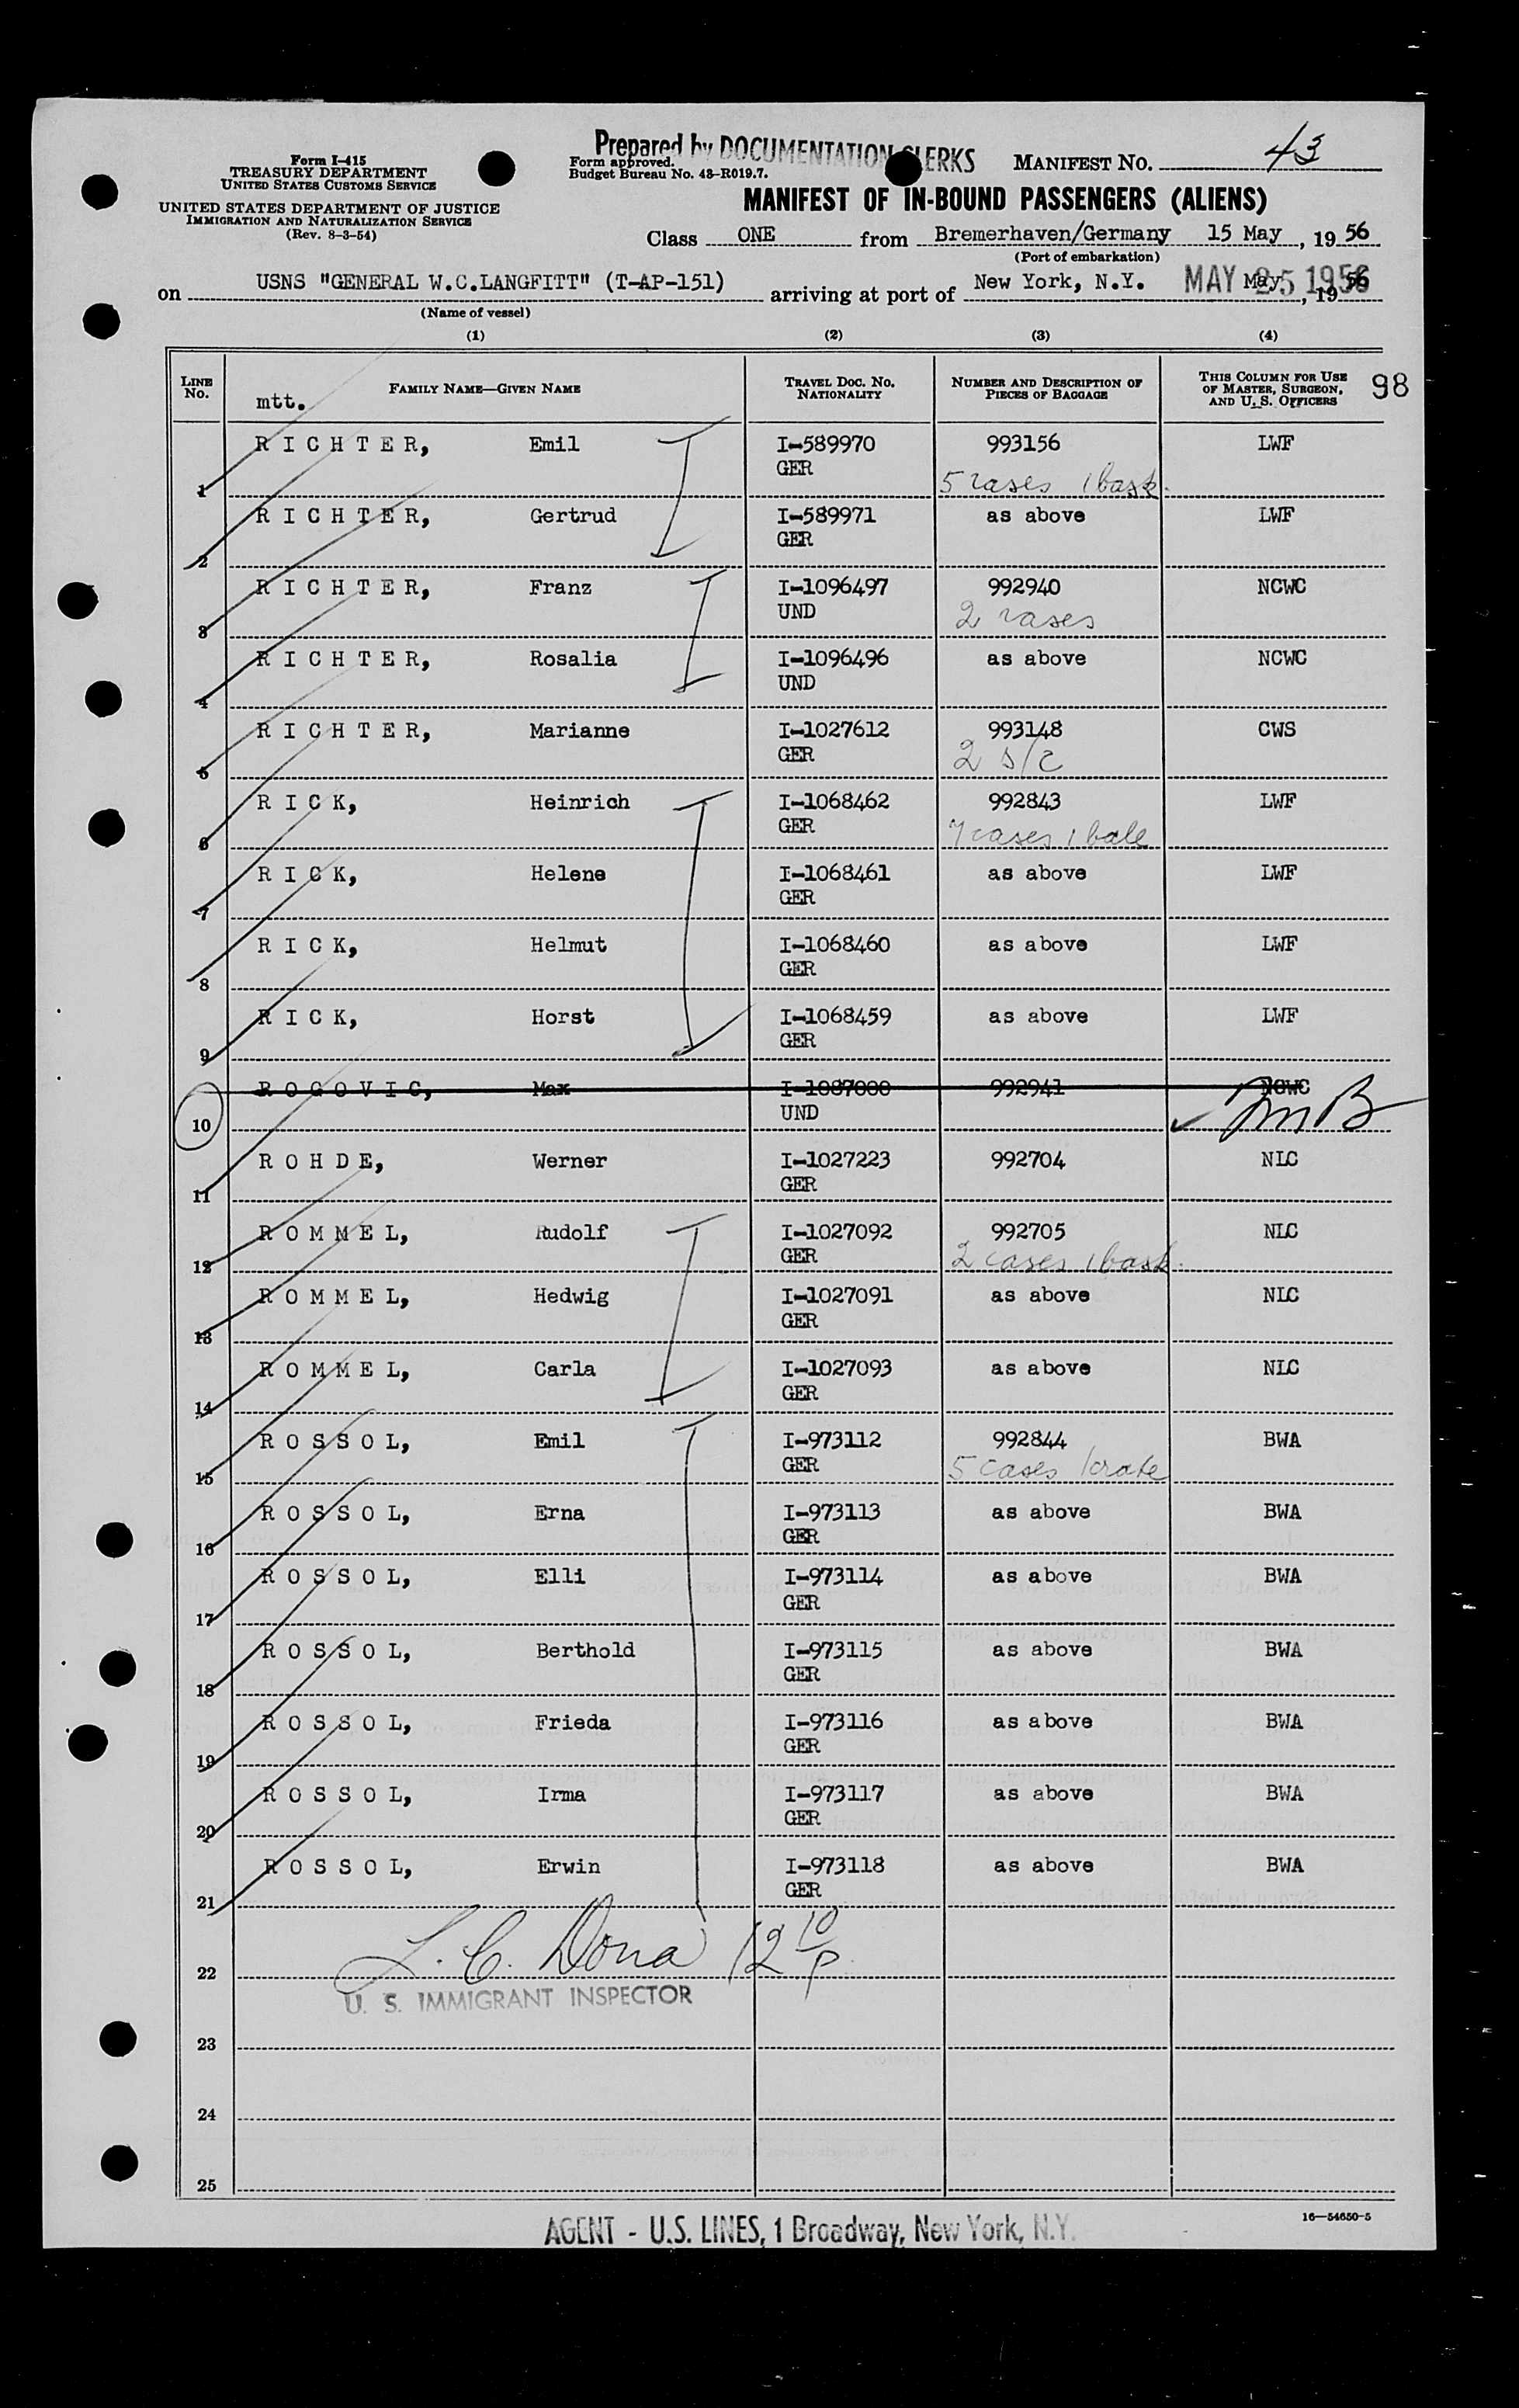 Prepared by DOCUMENTATION CLERKS
Form I-415
TREASURY DEPARTMENT
UNITED STATES CUSTOMS SERVICE
UNITED STATES DEPARTMENT OF JUSTICE
IMMIGRATION AND NATURALIZATION SERVICE
(Rev. 8-3-54)
Form approved.
Budget Bureau No. 43-R019.7.
MANIFEST NO. 43
MANIFEST OF IN-BOUND PASSENGERS (ALIENS)
Class ONE from Bremerhaven/Germany 15 May, 19 56
(Port of embarkation)
on USNS "GENERAL W.C.LANGFITT" (T-AP-151) arriving at port of New York, N.Y. May, 19 56
MAY 25 1956
(Name of vessel)
(1) (2) (3) (4)
LINE NO. FAMILY NAME—GIVEN NAME TRAVEL DOC. NO. NATIONALITY NUMBER AND DESCRIPTION OF PIECES OF BAGGAGE THIS COLUMN FOR USE OF MASTER, SURGEON, AND U. S. OFFICERS 98
mtt.
RICHTER, Emil I-589970 993156 LWF
GER
1 5 cases 1 bask.
RICHTER, Gertrud I-589971 as above LWF
GER
2
RICHTER, Franz I-1096497 992940 NCWC
UND 2 cases
3
RICHTER, Rosalia I-1096496 as above NCWC
UND
4
RICHTER, Marianne I-1027612 993148 CWS
GER 2 s/c
5
RICK, Heinrich I-1068462 992843 LWF
GER 7 cases 1 bale
6
RICK, Helene I-1068461 as above LWF
GER
7
RICK, Helmut I-1068460 as above LWF
GER
8
RICK, Horst I-1068459 as above LWF
GER
9
ROGOVIC, Max I-1087000 992941 NCWC
UND
10
ROHDE, Werner I-1027223 992704 NLC
GER
11
ROMMEL, Rudolf I-1027092 992705 NLC
GER 2 cases 1 bask.
12
ROMMEL, Hedwig I-1027091 as above NLC
GER
13
ROMMEL, Carla I-1027093 as above NLC
GER
14
ROSSOL, Emil I-973112 992844 BWA
GER 5 cases 1 crate
15
ROSSOL, Erna I-973113 as above BWA
GER
16
ROSSOL, Elli I-973114 as above BWA
GER
17
ROSSOL, Berthold I-973115 as above BWA
GER
18
ROSSOL, Frieda I-973116 as above BWA
GER
19
ROSSOL, Irma I-973117 as above BWA
GER
20
ROSSOL, Erwin I-973118 as above BWA
GER
21
L. C. Dona 12 10/p
22
U. S. IMMIGRANT INSPECTOR
23
24
25
AGENT - U.S. LINES, 1 Broadway, New York, N.Y.
16—54650-5